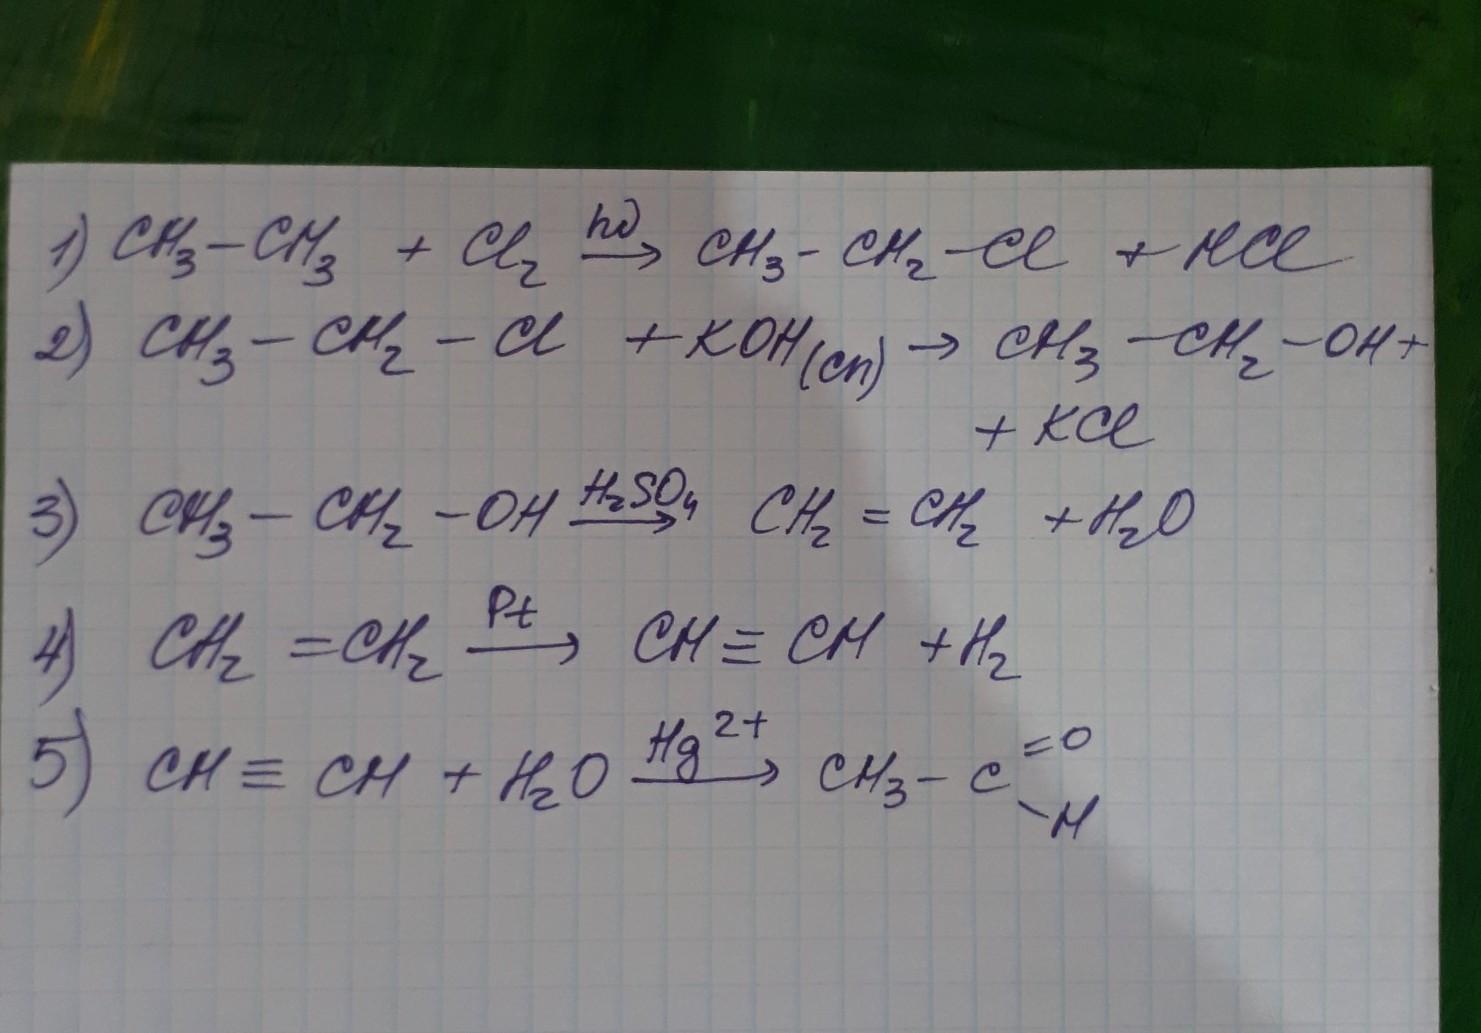 1) CH₃-CH₃ + Cl₂ hν→ CH₃-CH₂-Cl + HCl
2) CH₃-CH₂-Cl + KOH(сп) → CH₃-CH₂-OH +
+ KCl
3) CH₃-CH₂-OH H₂SO₄→ CH₂=CH₂ + H₂O
4) CH₂=CH₂ Pt→ CH≡CH + H₂
5) CH≡CH + H₂O Hg²⁺→ CH₃-C=O
-H